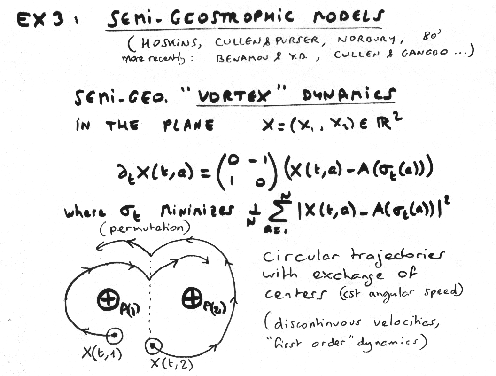 EX 3: SEMI-GEOSTROPHIC MODELS
(HOSKINS, CULLEN & PURSER, NORBURY, 80'
more recently: BENAMOU & Y.B., CULLEN & GANGBO ...)
SEMI-GEO. "VORTEX" DYNAMICS
IN THE PLANE X=(X₁, X₂) ∈ ℝ²
∂ₜX(t,a) = (0 -1; 1 0) (X(t,a) - A(σₜ(a)))
where σₜ minimizes 1/N Σ_{a=1}^N |X(t,a) - A(σₜ(a))|²
(permutation)
A(1)
A(2)
X(t,1)
X(t,2)
circular trajectories
with exchange of
centers (cst angular speed)
(discontinuous velocities,
"first order" dynamics)